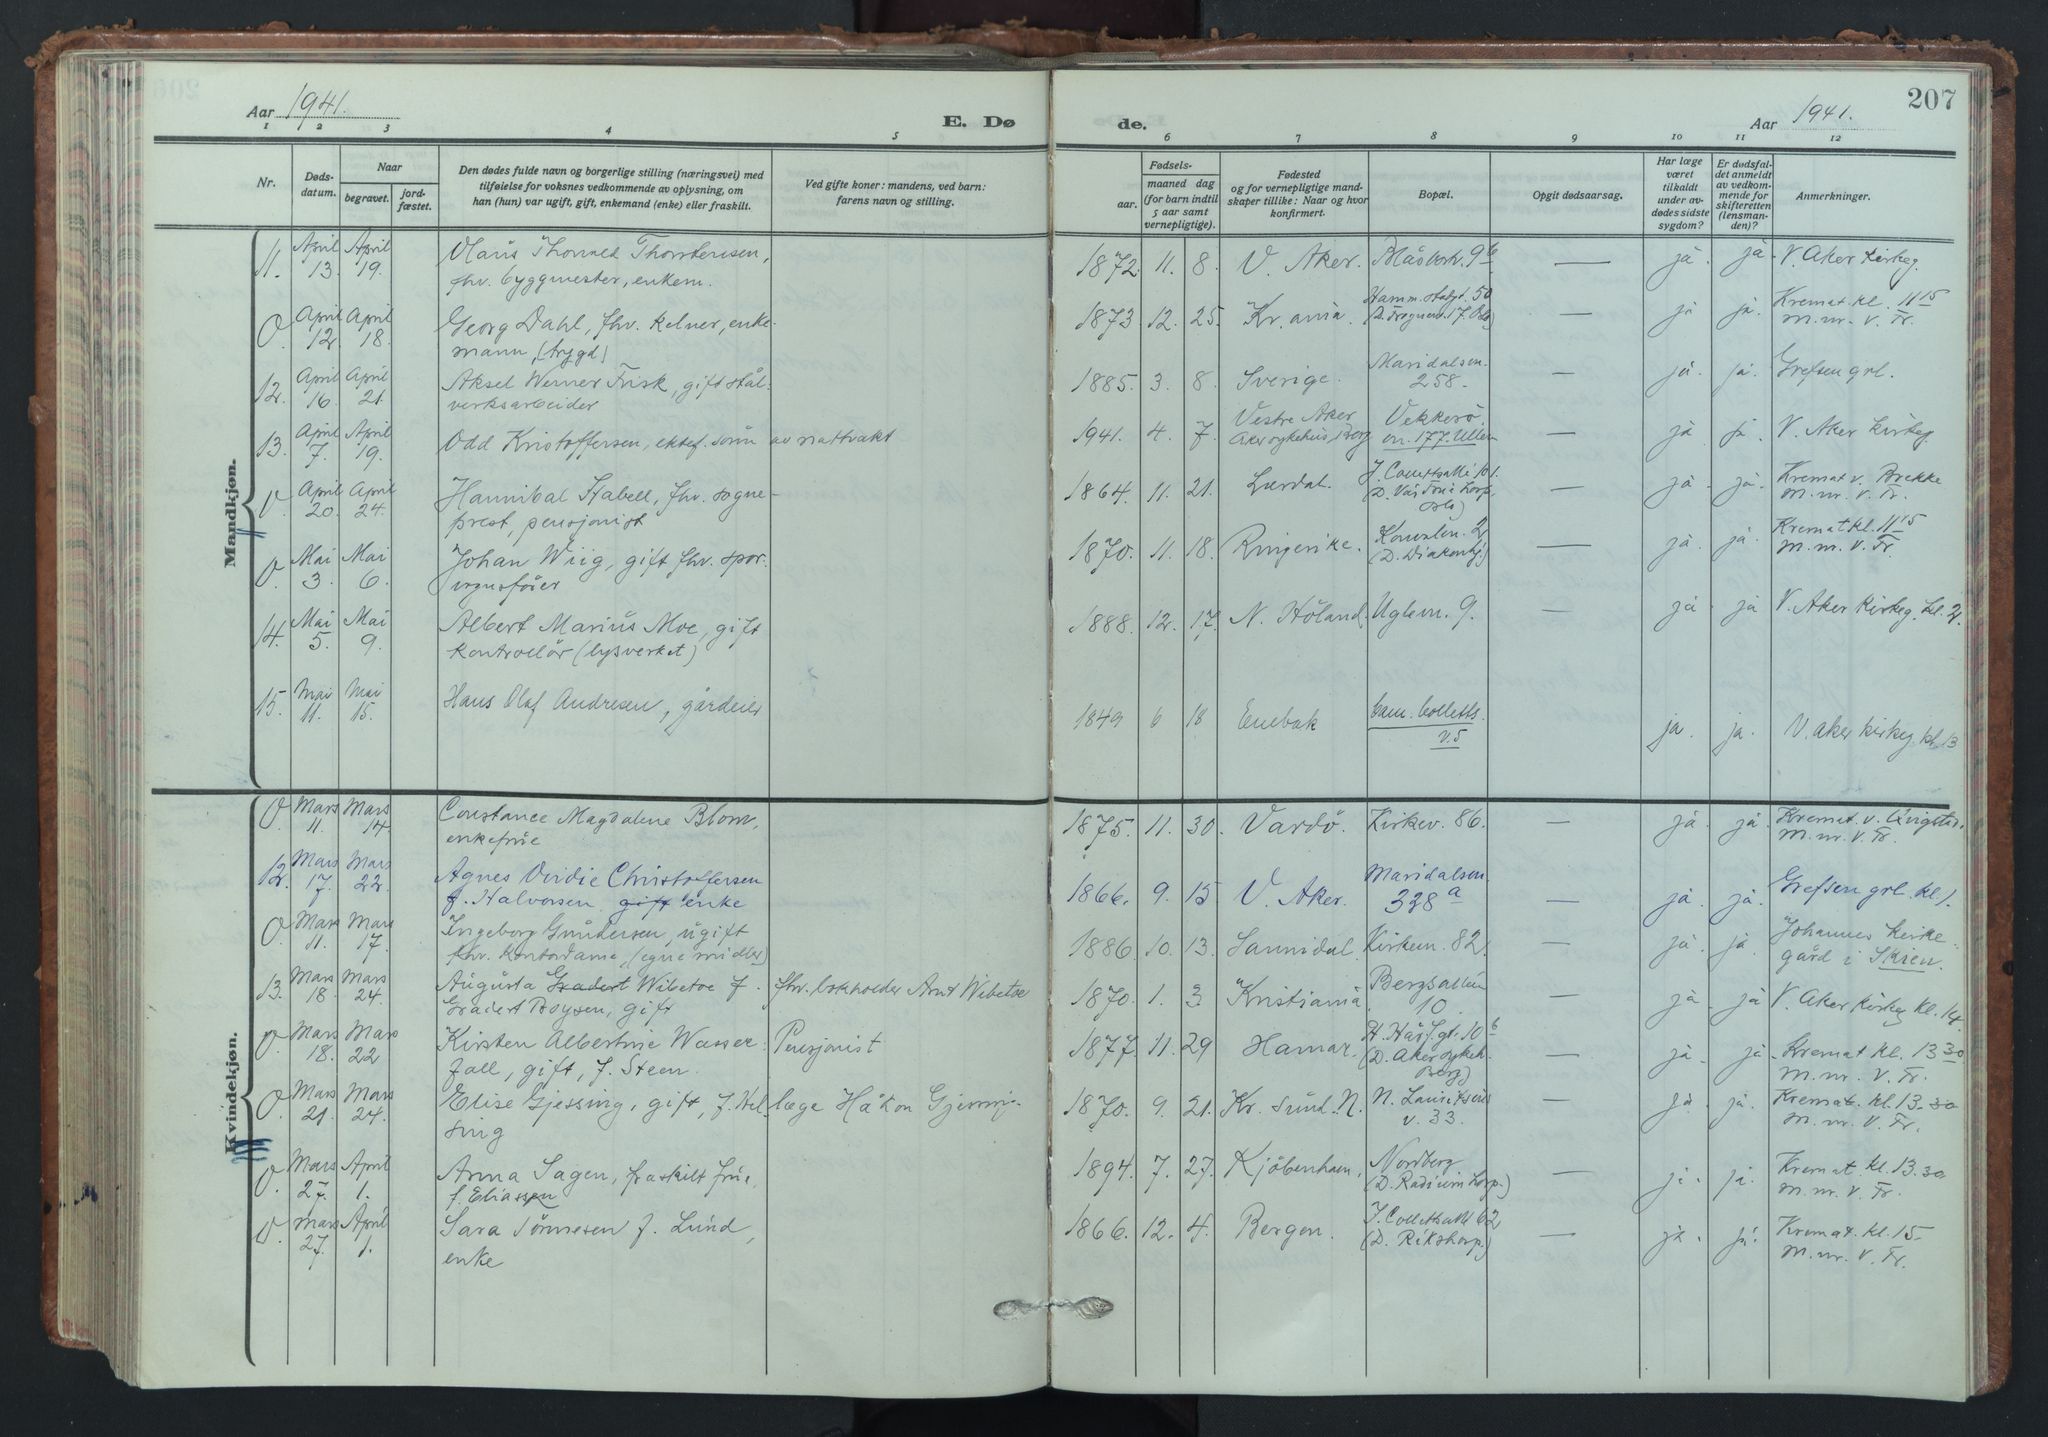 Aar 1941. E. Dø de. Aar 1941. 207
1 2 3 4 5 6 7 8 9 10 11 12
Nr. Døds-datum. Naar begravet. jord-fæstet. Den dødes fulde navn og borgerlige stilling (næringsvei) med tilføielse for voksnes vedkommende av oplysning, om han (hun) var ugift, gift, enkemand (enke) eller fraskilt. Ved gifte koner: mandens, ved barn: farens navn og stilling. Fødsels- aar. maaned dag (for barn indtil 5 aar samt vernepligtige). Fødested og for vernepligtige mand-skaper tillike: Naar og hvor konfirmert. Bopæl. Opgit dødsaarsag. Har læge været tilkaldt under av-dødes sidste sygdom? Er dødsfal-det anmeldt av vedkom-mende for skifteretten (lensman-den)? Anmerkninger.
Mandkjøn.
11. April 13. April 19. Thorvald Thorstensen, fhv. byggmester, enkem. 1872. 11. 8. V. Aker. 9b — ja. ja. V. Aker kirkeg.
0 April 12 April 18. Georg Dahl, fhv. kelner, enke-mann, (trygd) 1873 12. 25. Kr.ania. 50 — ja ja Kremat. kl. 11 15 M.nr. V. Tr.
12. April 16. April 21. Aksel Werner Frisk, gift stål-verksarbeider 1885. 3. 8. Sverige. Maridalsv. 258. — ja. ja. Grefsen grl.
13. April 7. April 19. Odd Kristoffersen, ektef. sønn av nattvakt 1941. 4. 7. Vestre Aker Aker sykehus, Berg Vekkerö-vn. 177. Ullern — ja ja. V. Aker kirkeg.
0 April 20. April 24. Hannibal Stabell, fhv. sogne-prest, pensjonist 1864. 11. 21. Lærdal. J. Collettsallé 101. — ja ja. Kremat v. Brekke M.nr. V. Tr.
0 Mai 3 Mai 6. Johan Wiig, gift fhv. spor-vognsfører 1870. 11. 18. Ringerike. 2 (D. Diakonhj.) — ja ja Kremat kl. 11 15 M.nr. V. Tr.
14. Mai 5. Mai 9. Albert Marius Moe, gift kontrollør (lysverket) 1888. 12. 17. N. Höland. Uglevn. 9. — ja ja V. Aker kirkeg. kl. 2.
15. Mai 11. Mai 15. Hans Olaf Andresen, gårdeier 1849 6 18 Enebak Cam. Colletts v. 5 ja. ja. V. Aker kirkeg. kl. 13
Kvindekjøn.
0 Mars 11. Mars 14. Constance Magdalene Blom, enkefrue 1875. 11. 30. Vardö. Kirkev. 86. — ja ja. Kremat. v. Qvigstad. M.nr. V. Tr.
12. Mars 17. Mars 22. Agnes Christoffersen f. Halvorsen gift enke 1866. 9. 15 V. Aker. Maridalsvn. 338 a — ja. ja. Grefsen grl. kl. 1.
0 Mars 11. Mars 17. Ingeborg Gundersen, ugift fhv. kontordame, (egne midler) 1886. 10. 13. Sannidal. Kirkevn. 82. — ja. ja Johannes kirke-gård i Skien.
13. Mars 18. Mars 24. Augusta Gradert Wibetoe f. Gradert Boysen, gift fhv. bokholder Arnt Wibetoe 1870. 1. 3. Kristiania Bergsalleen 10. — ja ja V. Aker kirkeg kl. 14.
0 Mars 18. Mars 22 Kirsten Albertine Wasser-fall, gift, f. Steen. Pensjonist 1877. 11. 29 Hamar. 10 b (D. Aker sykeh. Berg) — ja ja Kremat kl. 13 30 M.nr. V. Tr.
0 Mars 21. Mars 24. Elise Gjessing, gift, f. læge Håkon Gjessing 1870. 9. 21. Kr. sund. N. N. v. 33. — ja ja. Kremat. kl. 13.30 M.nr. V. Tr.
0 Mars 27. April 1. Anna Sagen, fraskilt frue, f. Eliassen 1894. 7. 27. Kjöbenhavn. Nordberg (D. Radium hosp.) — ja. ja. Kremat. kl. 13.30 M.nr. V. Tr.
0 Mars 27. April 1. Sara Tönnesen f. Lund, enke 1866. 12. 4. Bergen. J. Collettsallé 62 (D. Rikshosp.) — ja. ja. Kremat. kl. 15 M.nr. V. Tr.